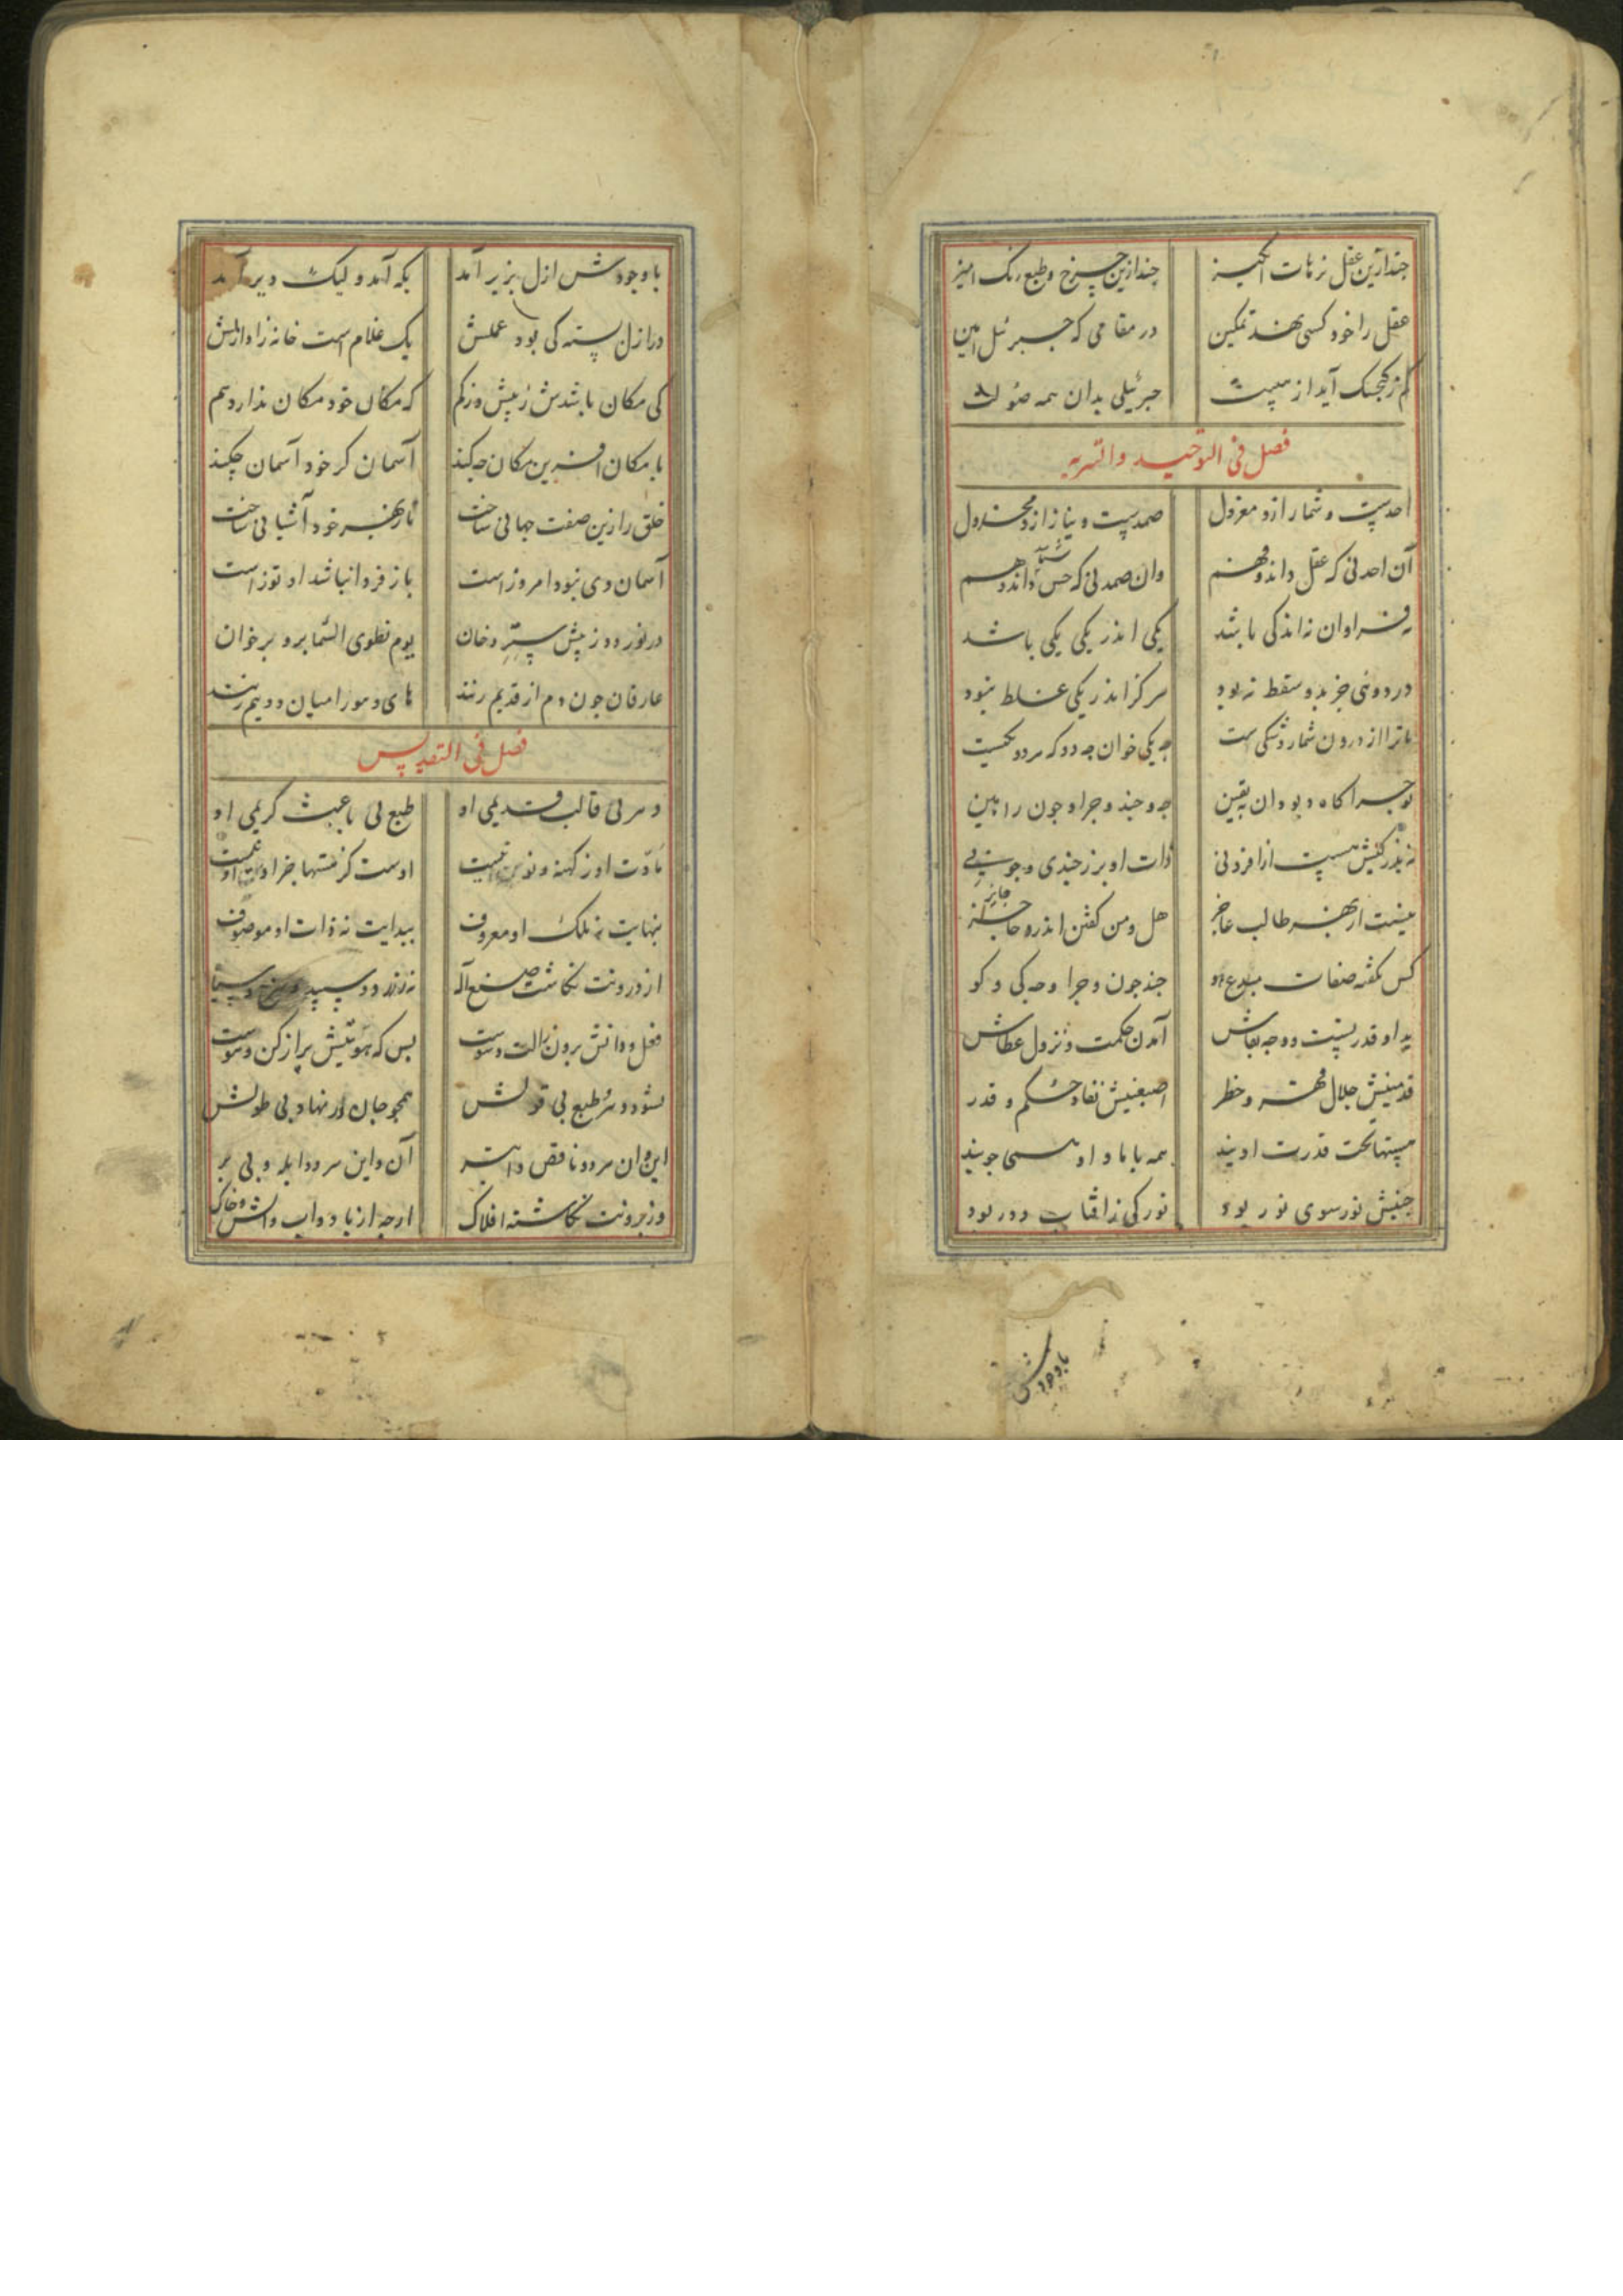 چند ازین عقل ترهات انگیز چند ازین چرخ و طبع رنگ امیز
عقل را خود کسی نهد تمکین در مقامی که جبرئیل امین
کم ز کنجشک آید از هیبت جبرئیلی بدان همه صولت
فصل فی التوحید و
احدست و شمار ازو معزول صمدست و نیاز ازو مخذول
آن احد نی که عقل داند و فهم وان صمد نی که حس داند و وهم
نه فراوان نه اندکی باشد یکی اندر یکی یکی باشد
در دوئی جز بد و سقط نبود هرکز اندر یکی غلط نبود
تا ترا از درون شمار و شکی است چه یکی خوان چه دو که هر دو یکیست
چه و چند و چرا و چون را ببین
نه بزرکیش هست از افزونی ذات او برز چندی و چونی
طالب عاجز هل و من کفتن اندرو جایز
کس نکفته صفات مبدع هو چند چون و چرا و چه کی و کو
ید او قدرتست و وجه بقاش آمدن حکمت و نزول عطاش
قدمینش جلال قهر و خطر اصبعینش نفاذ حکم و قدر
هستها تحت قدرت اویند همه با او و او همی جویند
جنبش نور سوی نور بود نور کی ز افتاب دور بود
باوجودش
با وجودش ازل بزیر آمد بکه آمد ولیک دیر آمد
در ازل بسته کی بود عملش یک غلام است خانه زاد ازلش
کی مکان باشدش ز بیش و ز کم که مکان خود مکان ندارد هم
با مکان افرین مکان چه کند آسمان کر خود آسمان چکند
خلق را زین صفت جهانی ساخت تا ز بهر خود آشیانی ساخت
آسمان دی نبود امروز است باز فردا نباشد او توز است
در نورد و ز پیش ستر دخان یوم نطوی السما برو برخوان
عارفان چون دم از قدیم زنند های و هو را میان دو نیم زنند
فصل فی التقدیس
دهر نی قالب قدیمی او طبع نی باعث کریمی او
مادت او ز کهنه و نو نیست اوست کز هستها جز او نیست
بنهایت نه ملک او معروف ببدایت نه ذات او موصوف
از درونت نکاشت صنع اله نه ز زرد و سپید و سرخ و سیاه
فعل و ذاتش برون ز الت و سوست بس که هویتیش پر از کن و هوست
نشود دهر طبع بی قولش همچو جان در نهاد بی طولش
این و ان هر دو ناقص و ابتر آن و این هر دو ابله و بی بر
وز برونت نکاشته افلاک از چه از باد و اب و اتش و خاک